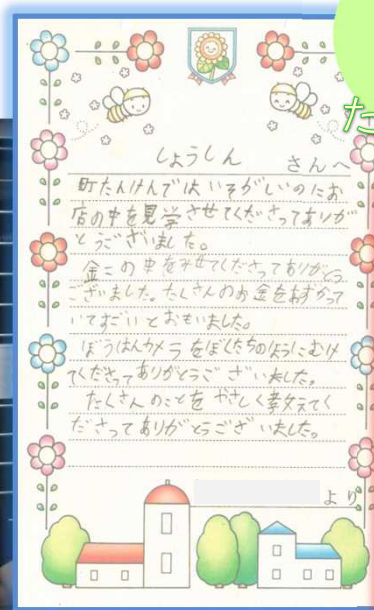 た
しょうしん さんへ
町たんけんでは、いそがしいのにお
店の中を見学させてくださってありが
とうございました。
金こ の中をみせてくださってありがとう
ございました。たくさんのお金をあずかって
いてすごいとおもいました。
ぼうはんカメラをぼくたちのほうにむけ
てくださってありがとうございました。
たくさんのことをやさしく教えてく
ださってありがとうございました。
より